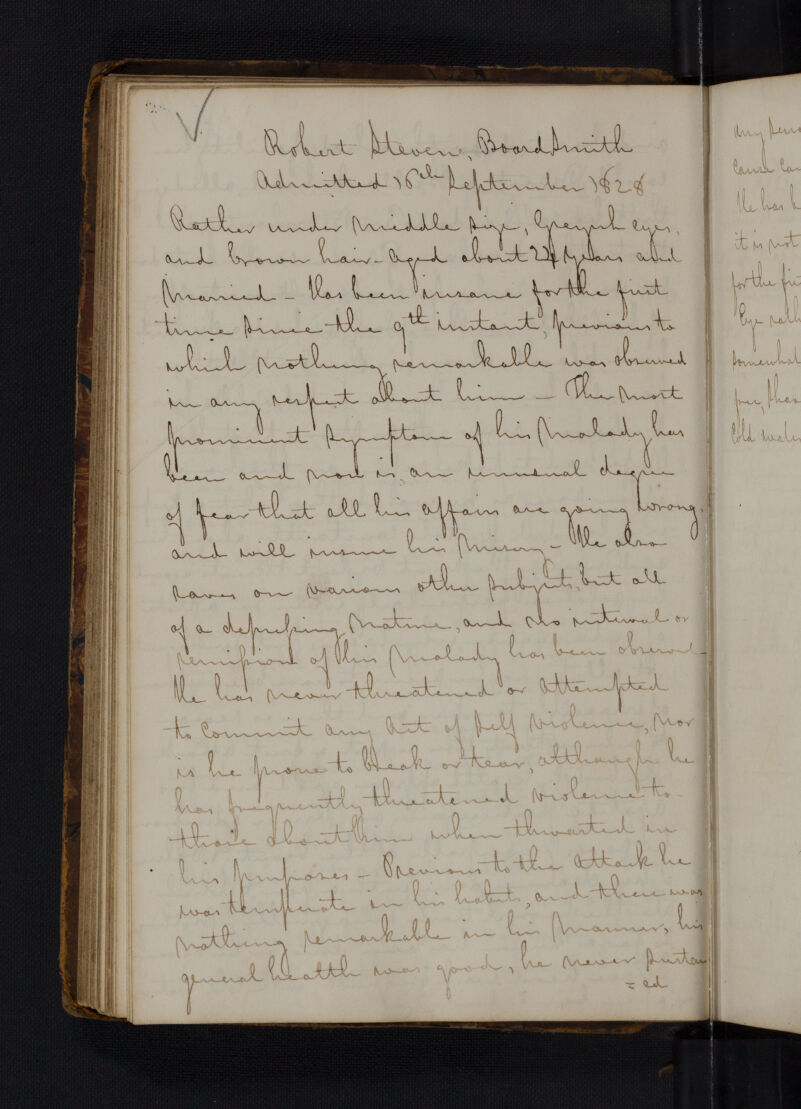 Robert Steven, Boardsmith
Admitted 16th September 1828
Rather under middle size, Greyish eyes,
and brown hair - aged about 24 years and
Married - Has been insane for the first
time since the 9th instant, previous to
which nothing remarkable was observed
in any respect about him - The most
prominent symptom of his Malady has
been and now is, an unusual degree
of fear that all his affairs are going wrong,
and will insure his Misery - He also
raves on various other subjects, but all
of a depressing Nature, and no interval or
remission of his Malady has been observed -
He has never threatened or attempted
to Commit any Act of Self Violence, nor
is he prone to break or tear, although he
has frequently threatened violence to
those about him when thwarted in
his purposes - Previous to the Attack he
was temperate in his habits, and there was
nothing remarkable in his Manner, his
general health was good, he never sustain
= ed
any
cause
He has
it is not
for the
Eye
somewhat
free,
Cold water